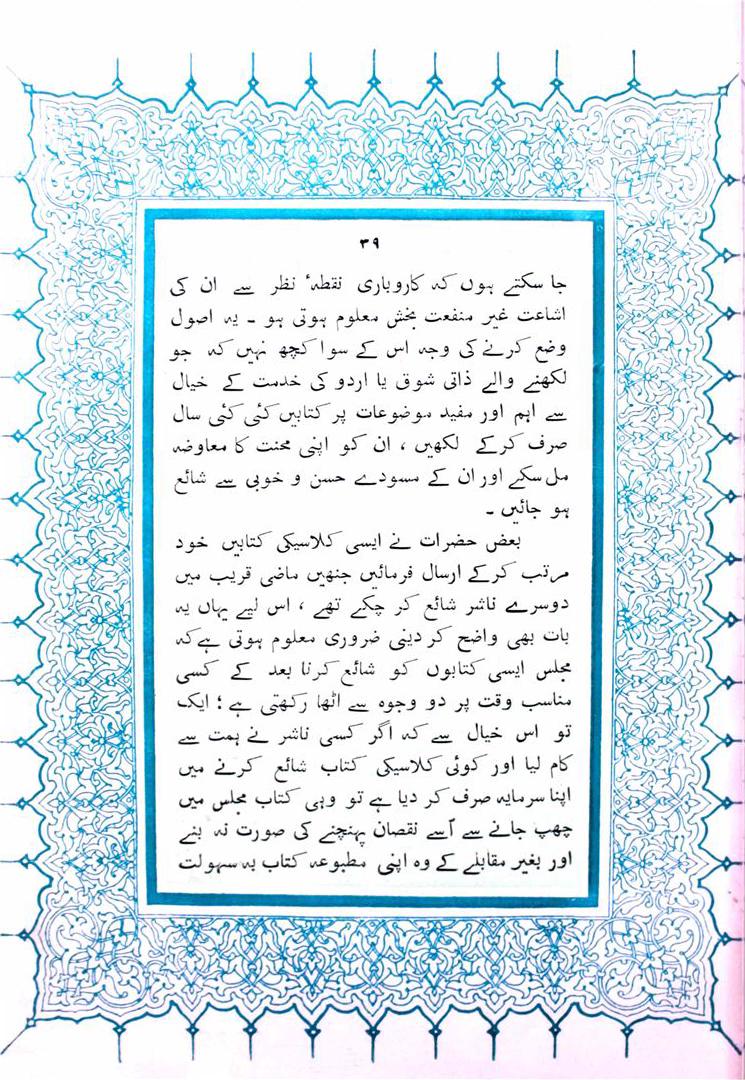 ۳۹
جا سکتے ہوں کہ کاروباری نقطۂ نظر سے ان کی
اشاعت غیر منفعت بخش معلوم ہوتی ہو ۔ یہ اصول
وضع کرنے کی وجہ اس کے سوا کچھ نہیں کہ جو
لکھنے والے ذاتی شوق یا اردو کی خدمت کے خیال
سے اہم اور مفید موضوعات پر کتابیں کئی کئی سال
صرف کرکے لکھیں ، ان کو اپنی محنت کا معاوضہ
مل سکے اور ان کے مسودے حسن و خوبی سے شائع
ہو جائیں ۔
بعض حضرات نے ایسی کلاسیکی کتابیں خود
مرتب کرکے ارسال فرمائیں جنھیں ماضی قریب میں
دوسرے ناشر شائع کر چکے تھے ، اس لیے یہاں یہ
بات بھی واضح کر دینی ضروری معلوم ہوتی ہے کہ
مجلس ایسی کتابوں کو شائع کرنا بعد کے کسی
مناسب وقت پر دو وجوہ سے اٹھا رکھتی ہے ؛ ایک
تو اس خیال سے کہ اگر کسی ناشر نے ہمت سے
کام لیا اور کوئی کلاسیکی کتاب شائع کرنے میں
اپنا سرمایہ صرف کر دیا ہے تو وہی کتاب مجلس میں
چھپ جانے سے اُسے نقصان پہنچنے کی صورت نہ بنے
اور بغیر مقابلے کے وہ اپنی مطبوعہ کتاب بہ سہولت